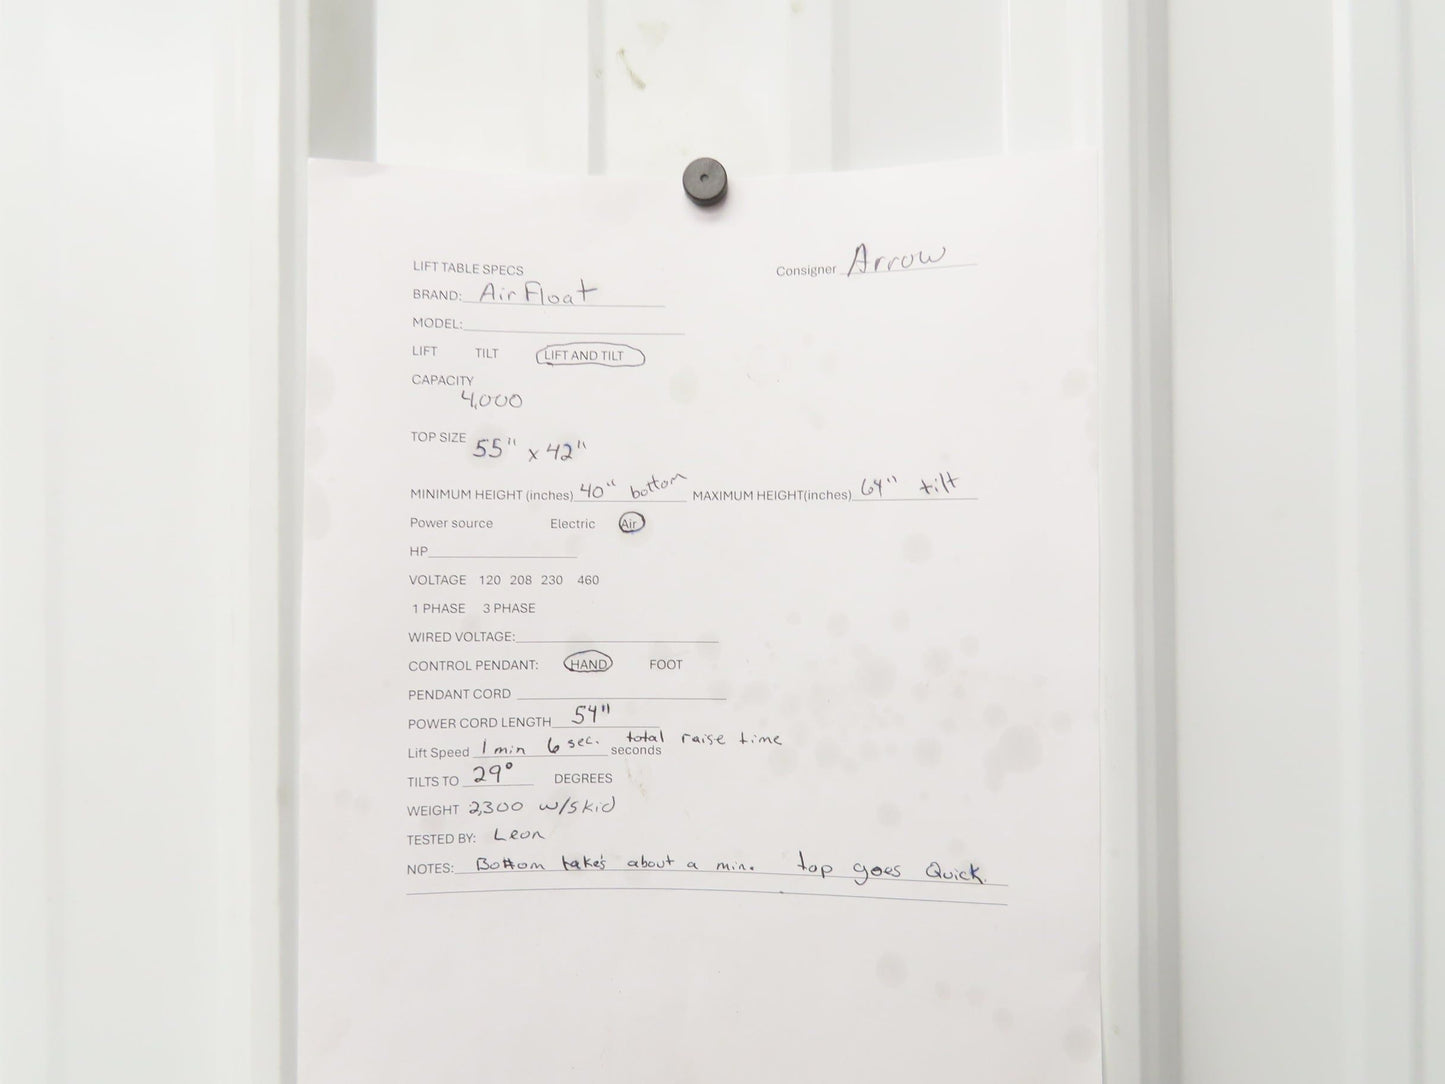 LIFT TABLE SPECS
Consigner Arrow
BRAND: Air Float
MODEL:
LIFT TILT LIFT AND TILT
CAPACITY
4,000
TOP SIZE 55" x 42"
MINIMUM HEIGHT (inches) 40" bottom MAXIMUM HEIGHT(inches) 64" tilt
Power source Electric Air
HP
VOLTAGE 120 208 230 460
1 PHASE 3 PHASE
WIRED VOLTAGE:
CONTROL PENDANT: HAND FOOT
PENDANT CORD
POWER CORD LENGTH 54"
Lift Speed 1 min 6 sec. total raise time
seconds
TILTS TO 29° DEGREES
WEIGHT 2,300 w/skid
TESTED BY: Leon
NOTES: Bottom take's about a min. top goes Quick.